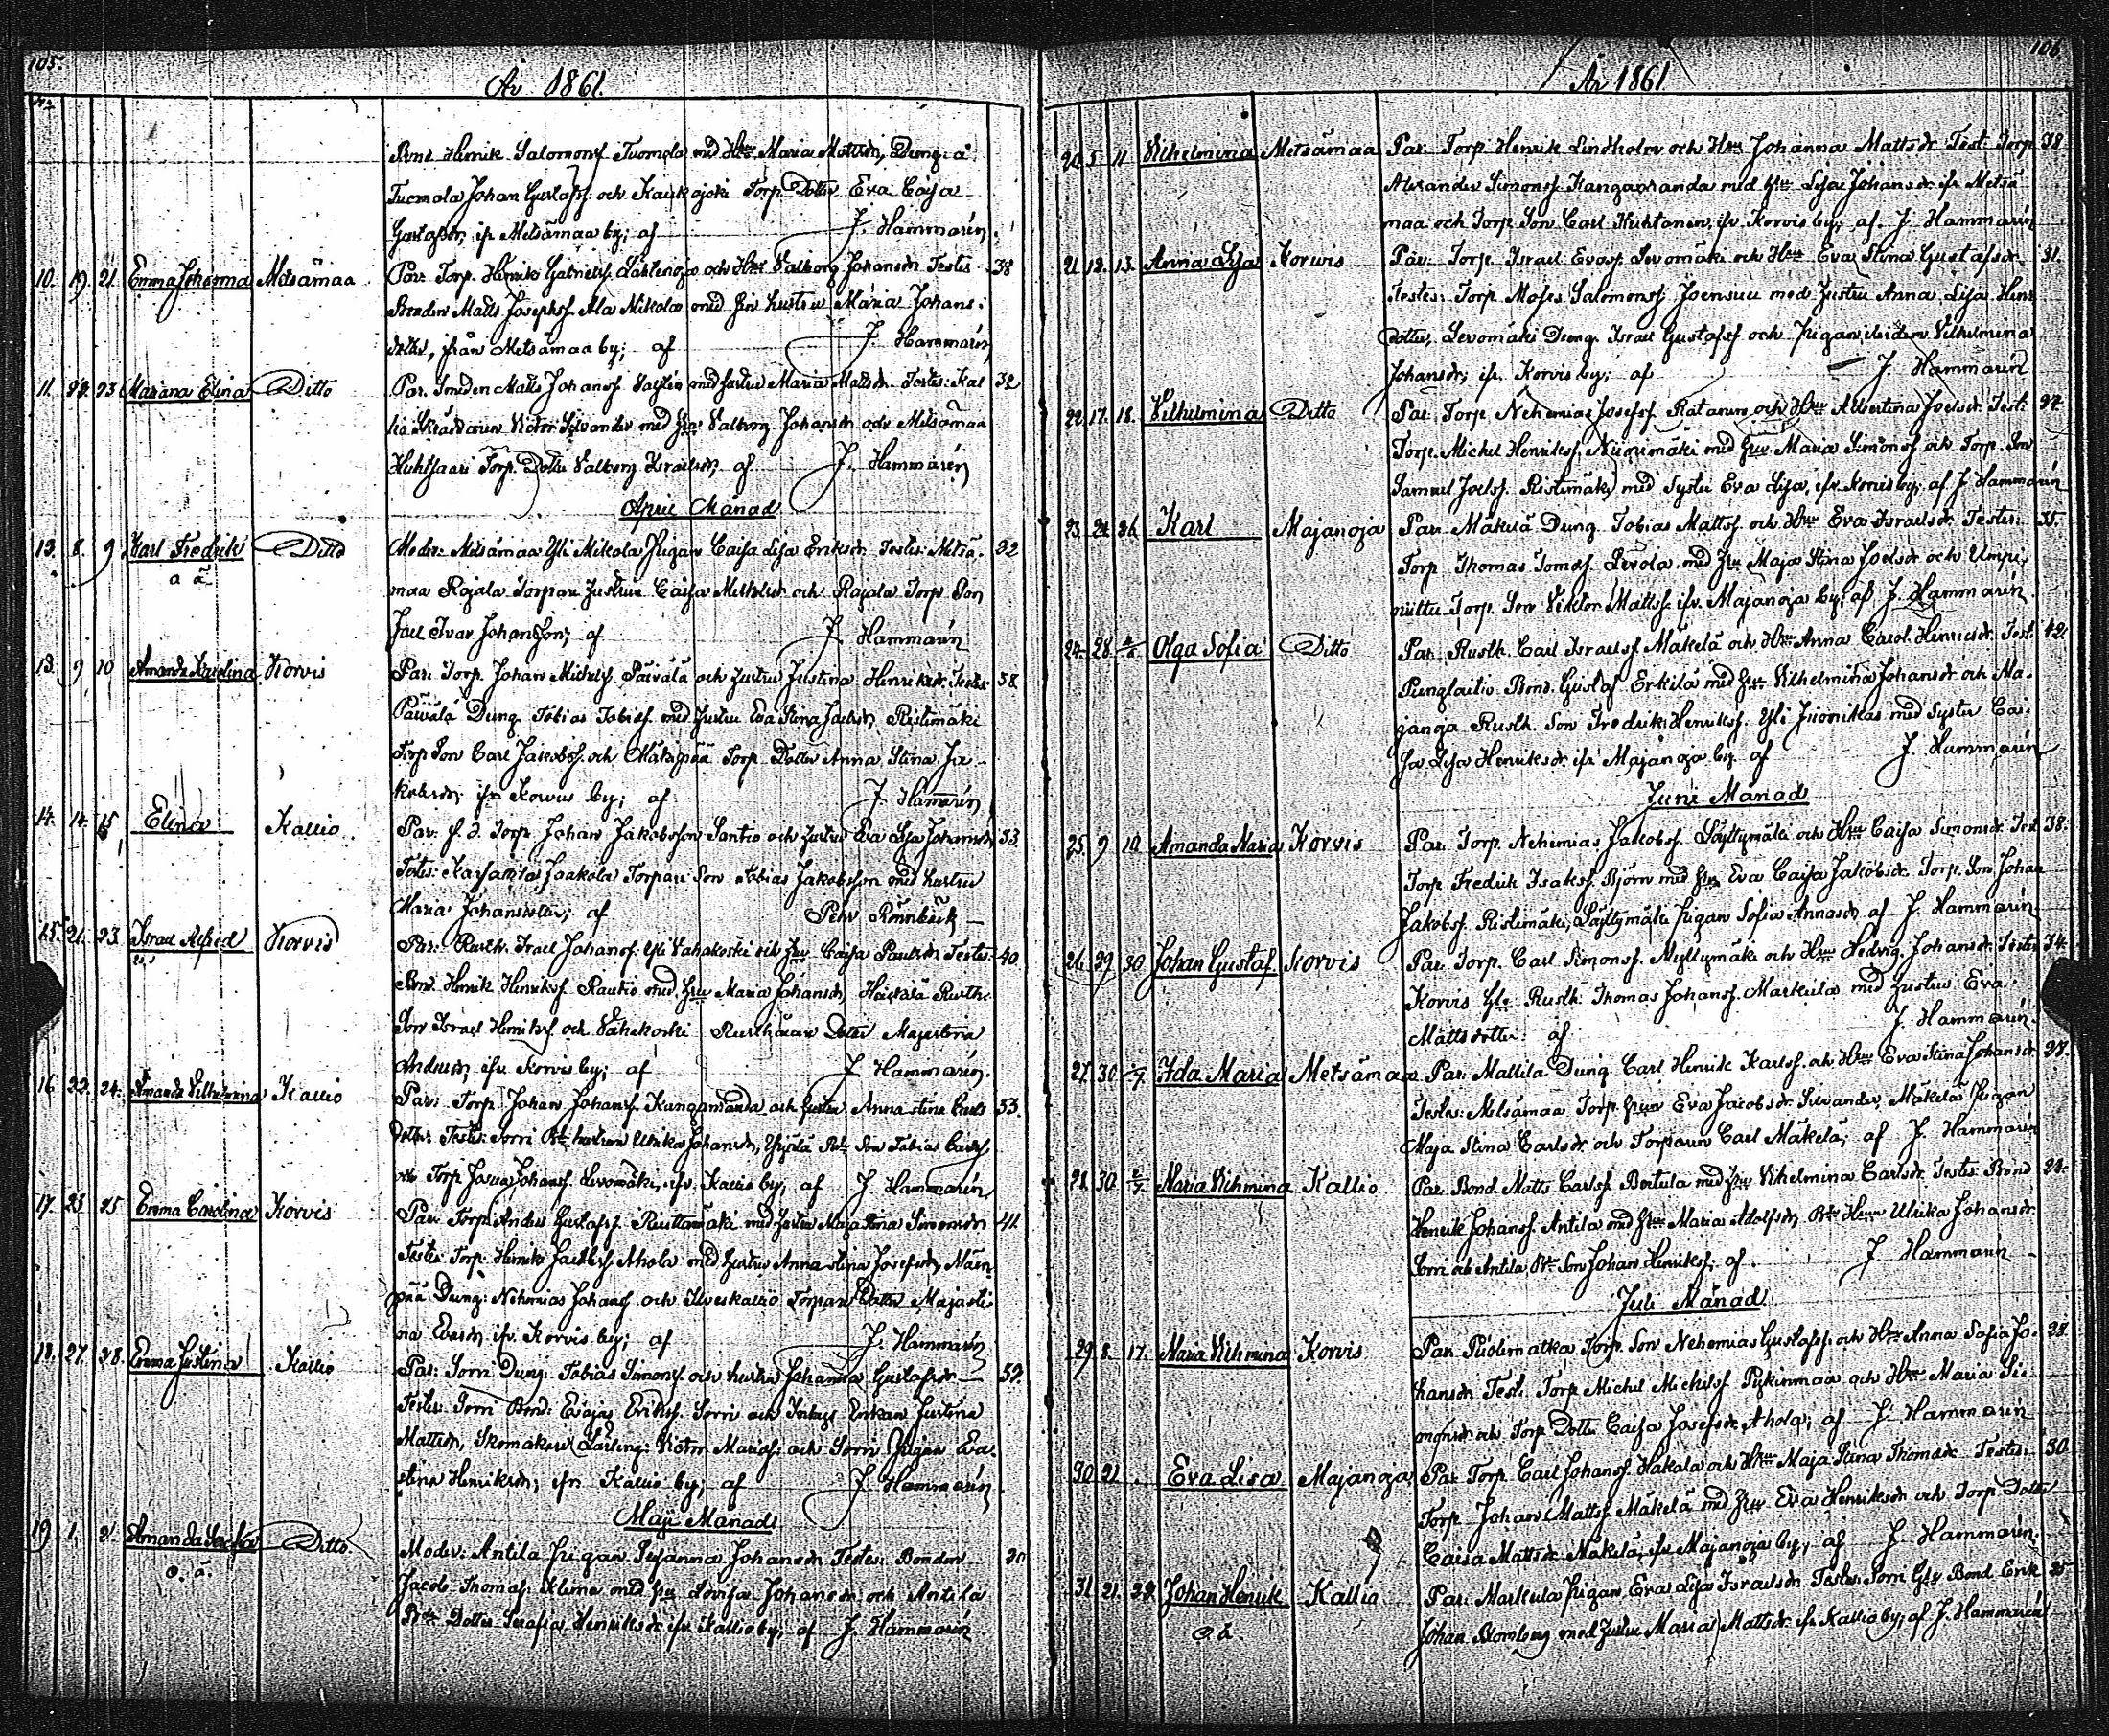 105.
År 1861.
No
Bond. Henrik Salomonsf Tuomola med Hru Maria Mattsdr, Dräng. å
Tuomola Johan Gustafsf. och Kaukojoki Torp. Dotter Eva Caisa
Gustafsdr, ifr Metsämaa by; af J. Hammarén.
10. 19. 21. Emma Johanna Metsämaa Par. Torp. Henrik Gabrielsf. Lähtenoja och Hru Valborg Johansdr Testes 38
Bonden Matts Josephsf. Ala Mikola med hustru Maria Johans:
dotter, från Metsämaa by; af J Hammarén
11. 22. 23 Mariana Elina Ditto Par. Smeden Matts Johansf. med hustru Maria Mattsdr. Testes: Kal 32
lio Skräddaren Victor Silvander med Hru Valborg Johansdr och Metsämaa
Huhtsaari Torp. Dotter Valborg Israelsdr, af J. Hammarén
April Månad
8. 9 Karl Fredrik Ditto Moder: Metsämaa Yli Mikola Pigan Caisa Lisa Eriksdr. Testes: Metsä- 32
o ä
maa Rajala Torpare Hustru Caisa och Rajala Torp. Son
Joel Ivar Johansson; af J. Hammarén
13. 9 10 Amanda Karolina Korvis Par. Torp. Johan Michelsf. Päivälä och hustru Justina Henriksdr. Testes 38.
Päivälä Dräng. Tobias Tobiasf. med hustru Eva Stina Jacbsdr, Ristimäki
Torp Son Carl Jacobsf. och Mäkipää Torp. Dotter Anna Stina Ja-
kobsdr; ifr Korvis by; af J Hammarén
14. 14. 15 Elina Kallio Par. f. d. Torp. Johan Jakobsson Santio och hustru Eva Lisa Johansdr 33.
Testes: Jaakola Torpare Son Tobias Jakobsson med hustru
Maria Johansdotter; af Pehr Rönnbäck
15. 21. 23. Israel Alfred Korvis Par: Rusth. Israel Johansf. Yli Vahakoski och Hru Caisa Paulsdr Testes: 40.
Bond Henrik Henriksf Rautio med Hru Maria Johansdr, Heikkilä Rusth.
Son Israel Henriksf och Vähäkoski Rusthållare Dotter Majastina
Andersdr, ifrn Korvis by; af J. Hammarén.
16. 22. 24. Amanda Vilhelmina Kallio Par: Torp. Johan Johansf. Kangasranda och hustru Anna Stina Carls 33.
dotter. Testes: Sorri Bde hustrun Ulrika Johansdr, Son Tobias Carlsf
och Torp Josua Johansf. Levomäki, ifr. Kallio by; af J. Hammarén
17. 23. 25 Emma Carolina Korvis Par. Torp. Anders Gustafsf. med hustru Maja Stina Simonsdr 41.
Testes: Torp. Henrik Jacobsf Ahola med hustru Anna Stina Josefsdr, Mäen-
pää Dräng: Nehemias Johansf och Ilveskallio Torpare Dotter Majasti
na Evasdr, ifr. Korvis by; af J. Hammarén
18. 27. 28. Emma Justina Kallio Par: Sorri Dräng: Tobias Simonsf. och hustru Johanna Gustafsdr 32.
Testes: Sorri Bond: Erik Eriksf. Sorri och Enkan Justina
Mattsdr, Skomakare Lärling: Victor Mariasf. och Sorri Pigan Eva-
stina Henriksdr; ifrn Kallio by; af J Hammarén
Maji Månad
19 1. 2. Amanda Serafia Ditto. Moder: Antila Pigan Susanna Johansdr Testes: Bonden 30
o. ä.
Jacob Thomasf. Klemo med Hru Lovisa Johansdr och Antila
Bde Dotter Serafia Henriksdr ifr. Kallio by, af J. Hammarén
106.
År 1861
20. 5. 11 Vilhelmina Metsämaa Par. Torp. Henrik Lindholm och Hru Johanna Mattsdr. Test. Torp. 38
Alexander Simonsf. Kangasranda med Hru Lisa Johansdr. ifr Metsä
maa och Torp. Son Carl Huhtanen, ifr. Korvis by; af J. Hammarén
21. 12. 13. Anna Lisa Korvis Par. Torp. Israel Evasf. Levomäki och Hru Eva Stina Gustafsdr. 31.
Testes: Torp. Moses Salomonsf Joensuu med Hustru Anna Lisa Henr
dotter, Levomäki Dräng. Israel Gustafsf och Pigan Vilhelmina
Johansdr; ifr. Korvis by; af J Hammarén
22. 17. 18. Vilhelmina Ditto Par. Torp. Nehemias Josefsf. Ratanen och Hru Albertina Joelsdr. Test: 37.
Torp. Michel Henriksf. Niinimäki med Hru Maria Simonsdr och Torp. Son
Samuel Joelsf. Ristimäki med Syster Eva Lisa, ifr. Korvis by, af J. Hammarén
23. 24. 26 Karl Majanoja Par. Mäkelä Dräng. Tobias Mattsf. och Hru Eva Israelsdr. Testes: 35.
Torp. Thomas Tomasf. Levola med Hru Maja Stina Joelsdr och Umpi-
niittu Torp. Son Viktor Mattsf. ifr. Majanoja by; af J. Hammarén.
24. 28. 2/6 Olga Sofia Ditto Par. Rusth. Carl Israelsf Mäkelä och Hru Anna Carol. Henricsdr. Test. 42.
Punglaitio Bond. Gustaf Erkilä med Hru Vilhelmina Johansdr. och Ma-
janoja Rusth. Son Fredrik Henriksf. Yli Junnikas med Syster Cai-
sa Lisa Henriksdr. ifr. Majanoja by. af J. Hammarén
Juni Månad
25. 9 10. Amanda Maria Korvis Par. Torp. Nehemias Jakobsf. Löyttymäki och Hru Caisa Simonsdr. Test 38.
Torp. Fredrik Isaksf. Björn med Hru Eva Caisa Jakobsdr. Torp. Son Johan
Jakobsf. Ristimäki, Löyttymäki Pigan Sofia Annasdr. af J. Hammarén.
26. 29. 30 Johan Gustaf. Korvis Par. Torp. Carl Simonsf. Myllymäki och Hru Hedvig Johansdr. Testes 34.
Korvis Gle Rusth. Thomas Johansf. Markula med hustru Eva
Mattsdotter. af J. Hammarén.
27. 30 2/7 Ida Maria Metsämaa Par: Mattila Dräng. Carl Henrik Karlsf. och Hru Eva Stina Johansdr. 27.
Testes: Metsämaa Torp. Hrun Eva Jacobsdr. Silvander, Mäkelä Pigan
Maja Stina Carlsdr. och Torparen Carl Mäkelä; af J. Hammarén
28. 30. 2/7 Maria Vilhmina Kallio Par. Bond. Matts Carlsf. Bertula med Hru Vilhelmina Carlsdr. Testes: Bond 24.
Henrik Johansf. Antila med Hru Maria Adolfsdr. Bde Hrun Ulrika Johansdr.
Sorri och Antila Bde Son Johan Henriksf; af J. Hammarén
Juli Månad
29. 8. 17. Maria Vilhmina Korvis Par. Torp. Son Nehemias Gustafsf. och Hru Anna Sofia Jo- 28.
hansdr. Test: Torp Michel Michelsf Pykinmaa och Hru Maria Si-
monsdr. och Torp Dotter Caisa Josefsdr. Ahola; af J. Hammarén
30 21 . Eva Lisa Majanoja Par Torp. Carl Johansf. Hakala och Hru Maja Stina Thomasdr. Testes: 30.
Torp. Johan Mattsf. Mäkelä med Hru Eva Henriksdr och Torp. Dotter
Caisa Mattsdr. Mäkelä, ifr Majanoja by; af J. Hammarén.
31. 21. 22. Johan Henrik Kallio Par: Markula Pigan Eva Lisa Israelsdr. Testes. Sorri Gle Bond. Erik 25
o. ä.
Johan Blomberg med hustru Maria Mattsdr. ifr Kallio by; af J. Hammarén